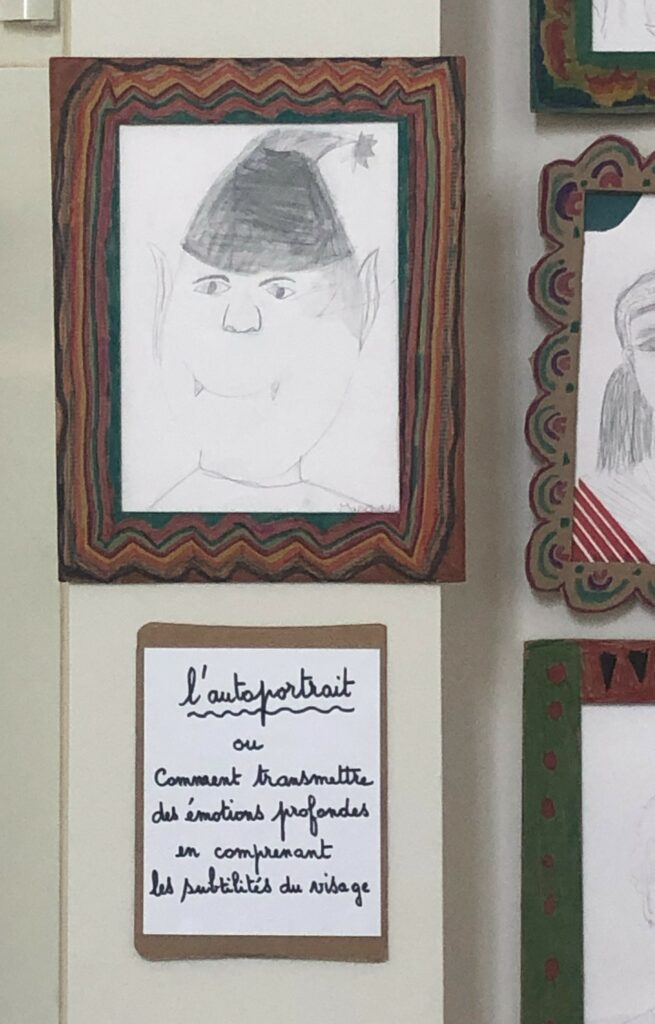 l'autoportrait
ou
Comment transmettre
des émotions profondes
en comprenant
les subtilités du visage